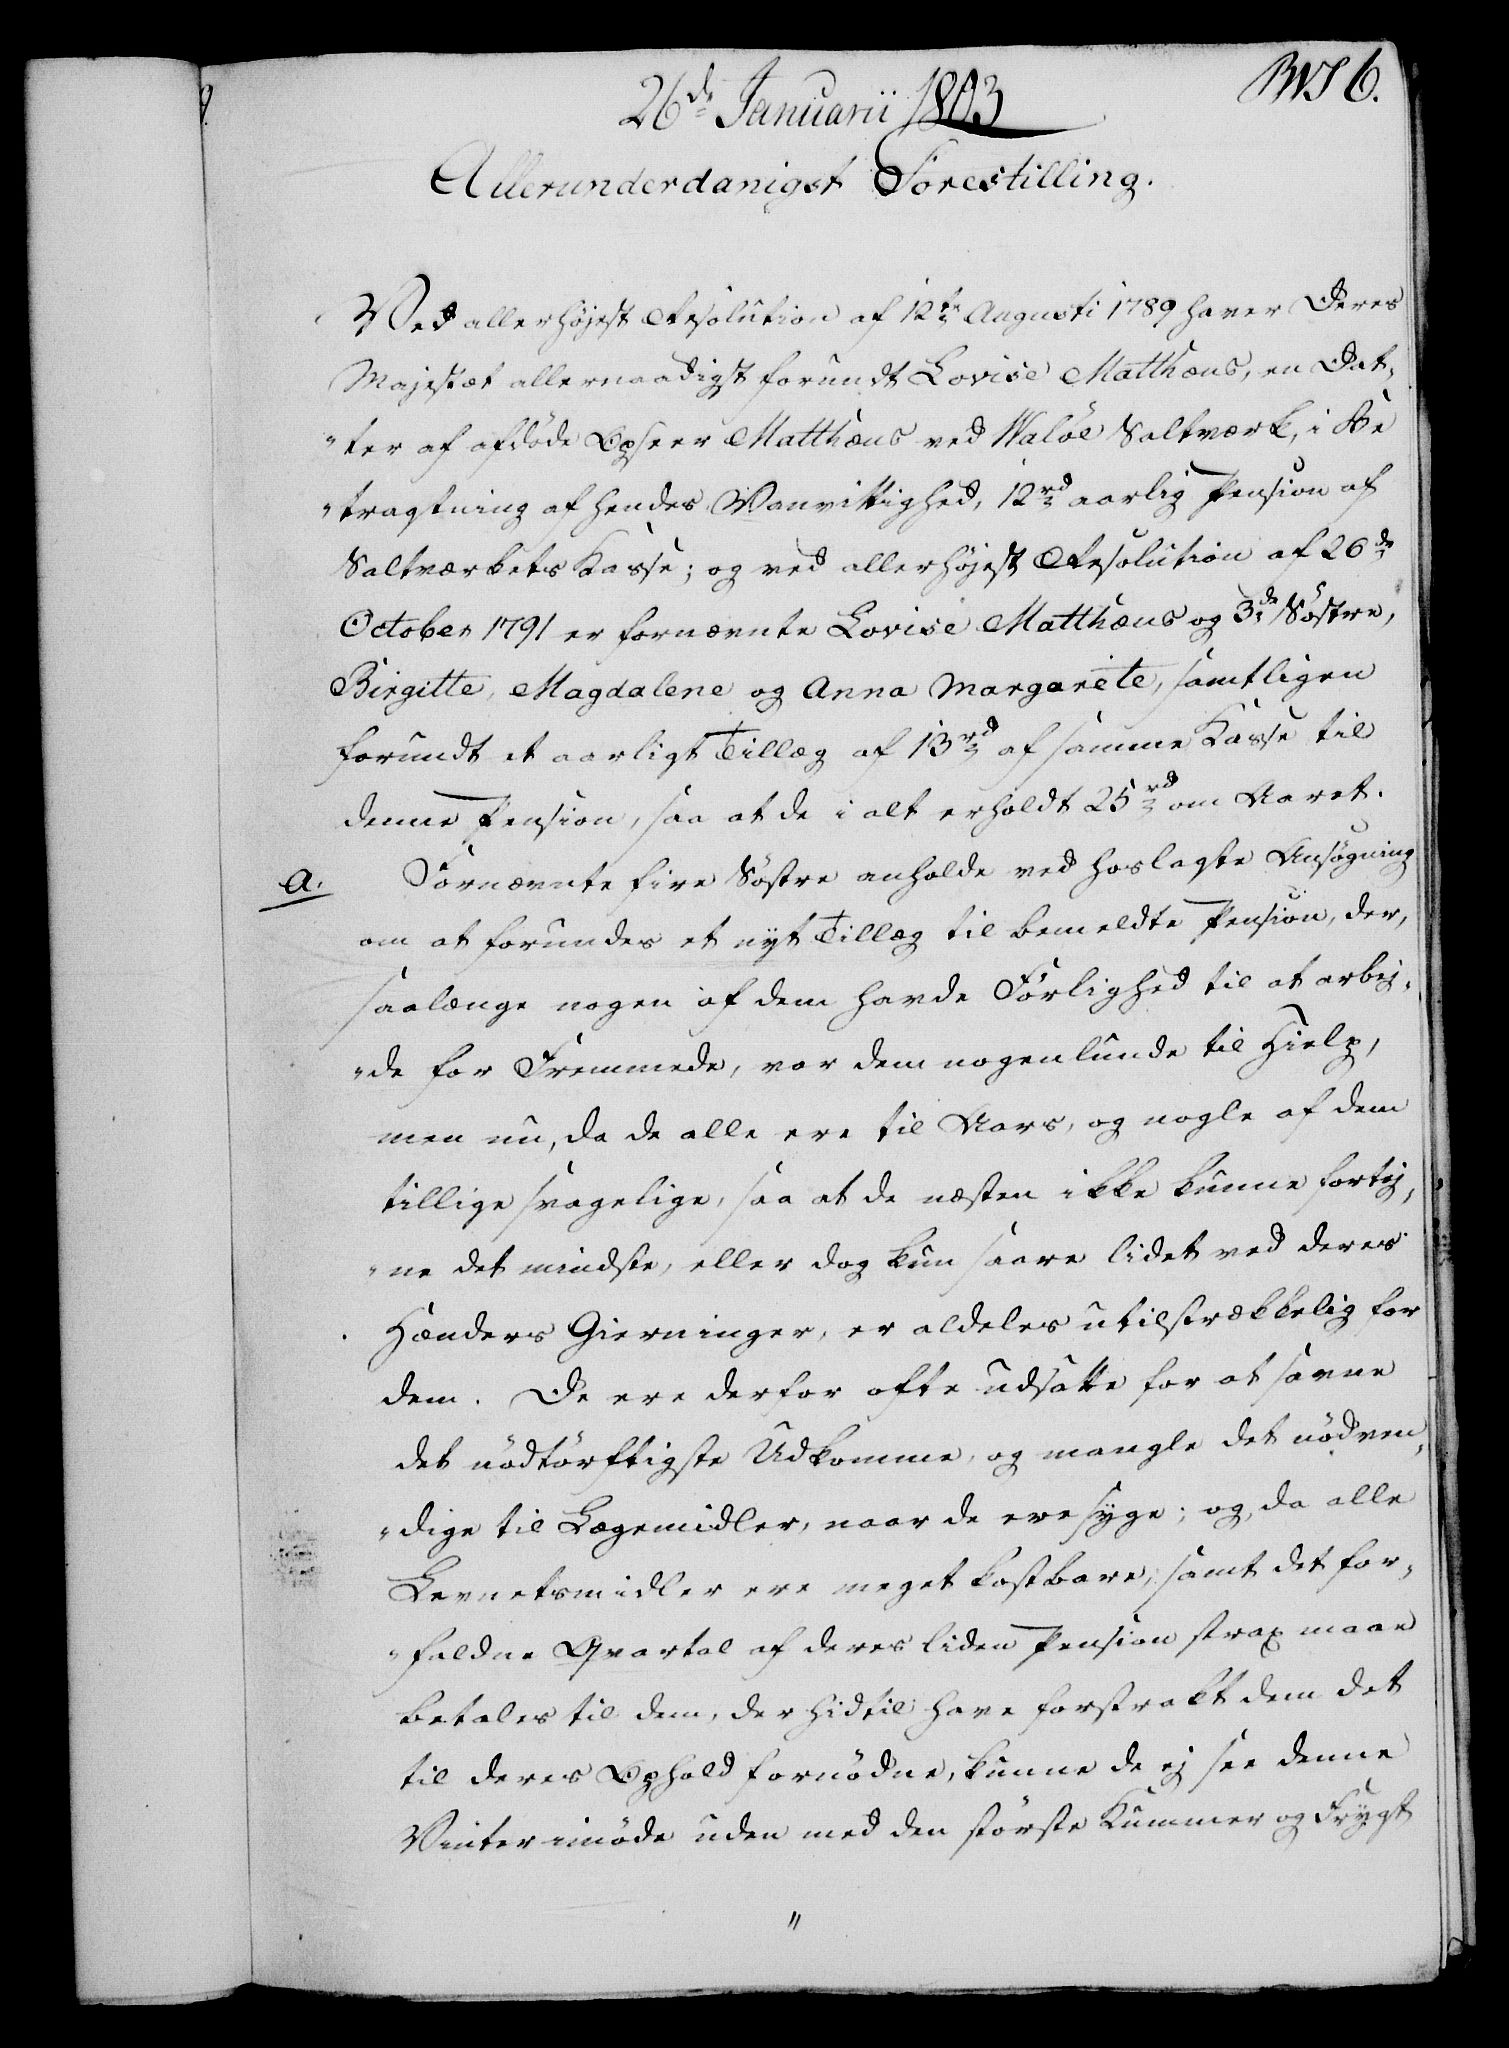 26de Januarii 1803
No 6.
Allerunderdanigst Forestilling.
Ved allerhøjest Resolution af 12te Augusti 1789 haver Deres
Majestæt allernaadigst forundt Lovise Matthæus, en Dat-
"ter af afdøde Opseer Matthæus ved Waløe Saltværk, i Be
"tragtning af hendes Vanvittighed, 12 rd aarlig Pension af
Saltværkets Kasse; og ved allerhøjest Resolution af 26de
October 1791 er fornævnte Lovise Matthæus og 3de Søstre,
Birgitte, Magdalene og Anna Margarete, samtligen
forundt et aarligt Tillæg af 13 rd af samme Kasse til
denne Pension, saa at de i alt erholdt 25 rd om Aaret.
a. Fornævnte fire Søstre anholde ved hoslagte Ansøgning
om at forundes et nyt Tillæg til bemeldte Pension, der,
saalænge nogen af dem havde Førlighed til at arbej-
"de for Fremmede, var dem nogenlunde til Hielp,
men nu, da de alle ere til Aars, og nogle af dem
tillige svagelige, saa at de næsten ikke kunne fortj-
"ne det mindste, eller dog kun saare lidet ved deres
Hænders Gierninger, er aldeles utilstrækkelig for
dem. De ere derfor ofte udsatte for at savne
det nødtørftigste Udkomme, og mangle det nødven-
"dige til Lægemidler, naar de ere syge; og, da alle
Levnetsmidler ere meget kostbare, samt det for-
"faldne Qvartal af deres liden Pension strax maae
betales til dem, der hidtil have forstrakt dem det
til deres Ophold fornødne, kunne de ej see denne
Vinter imøde uden med den største Kummer og Frygt
"